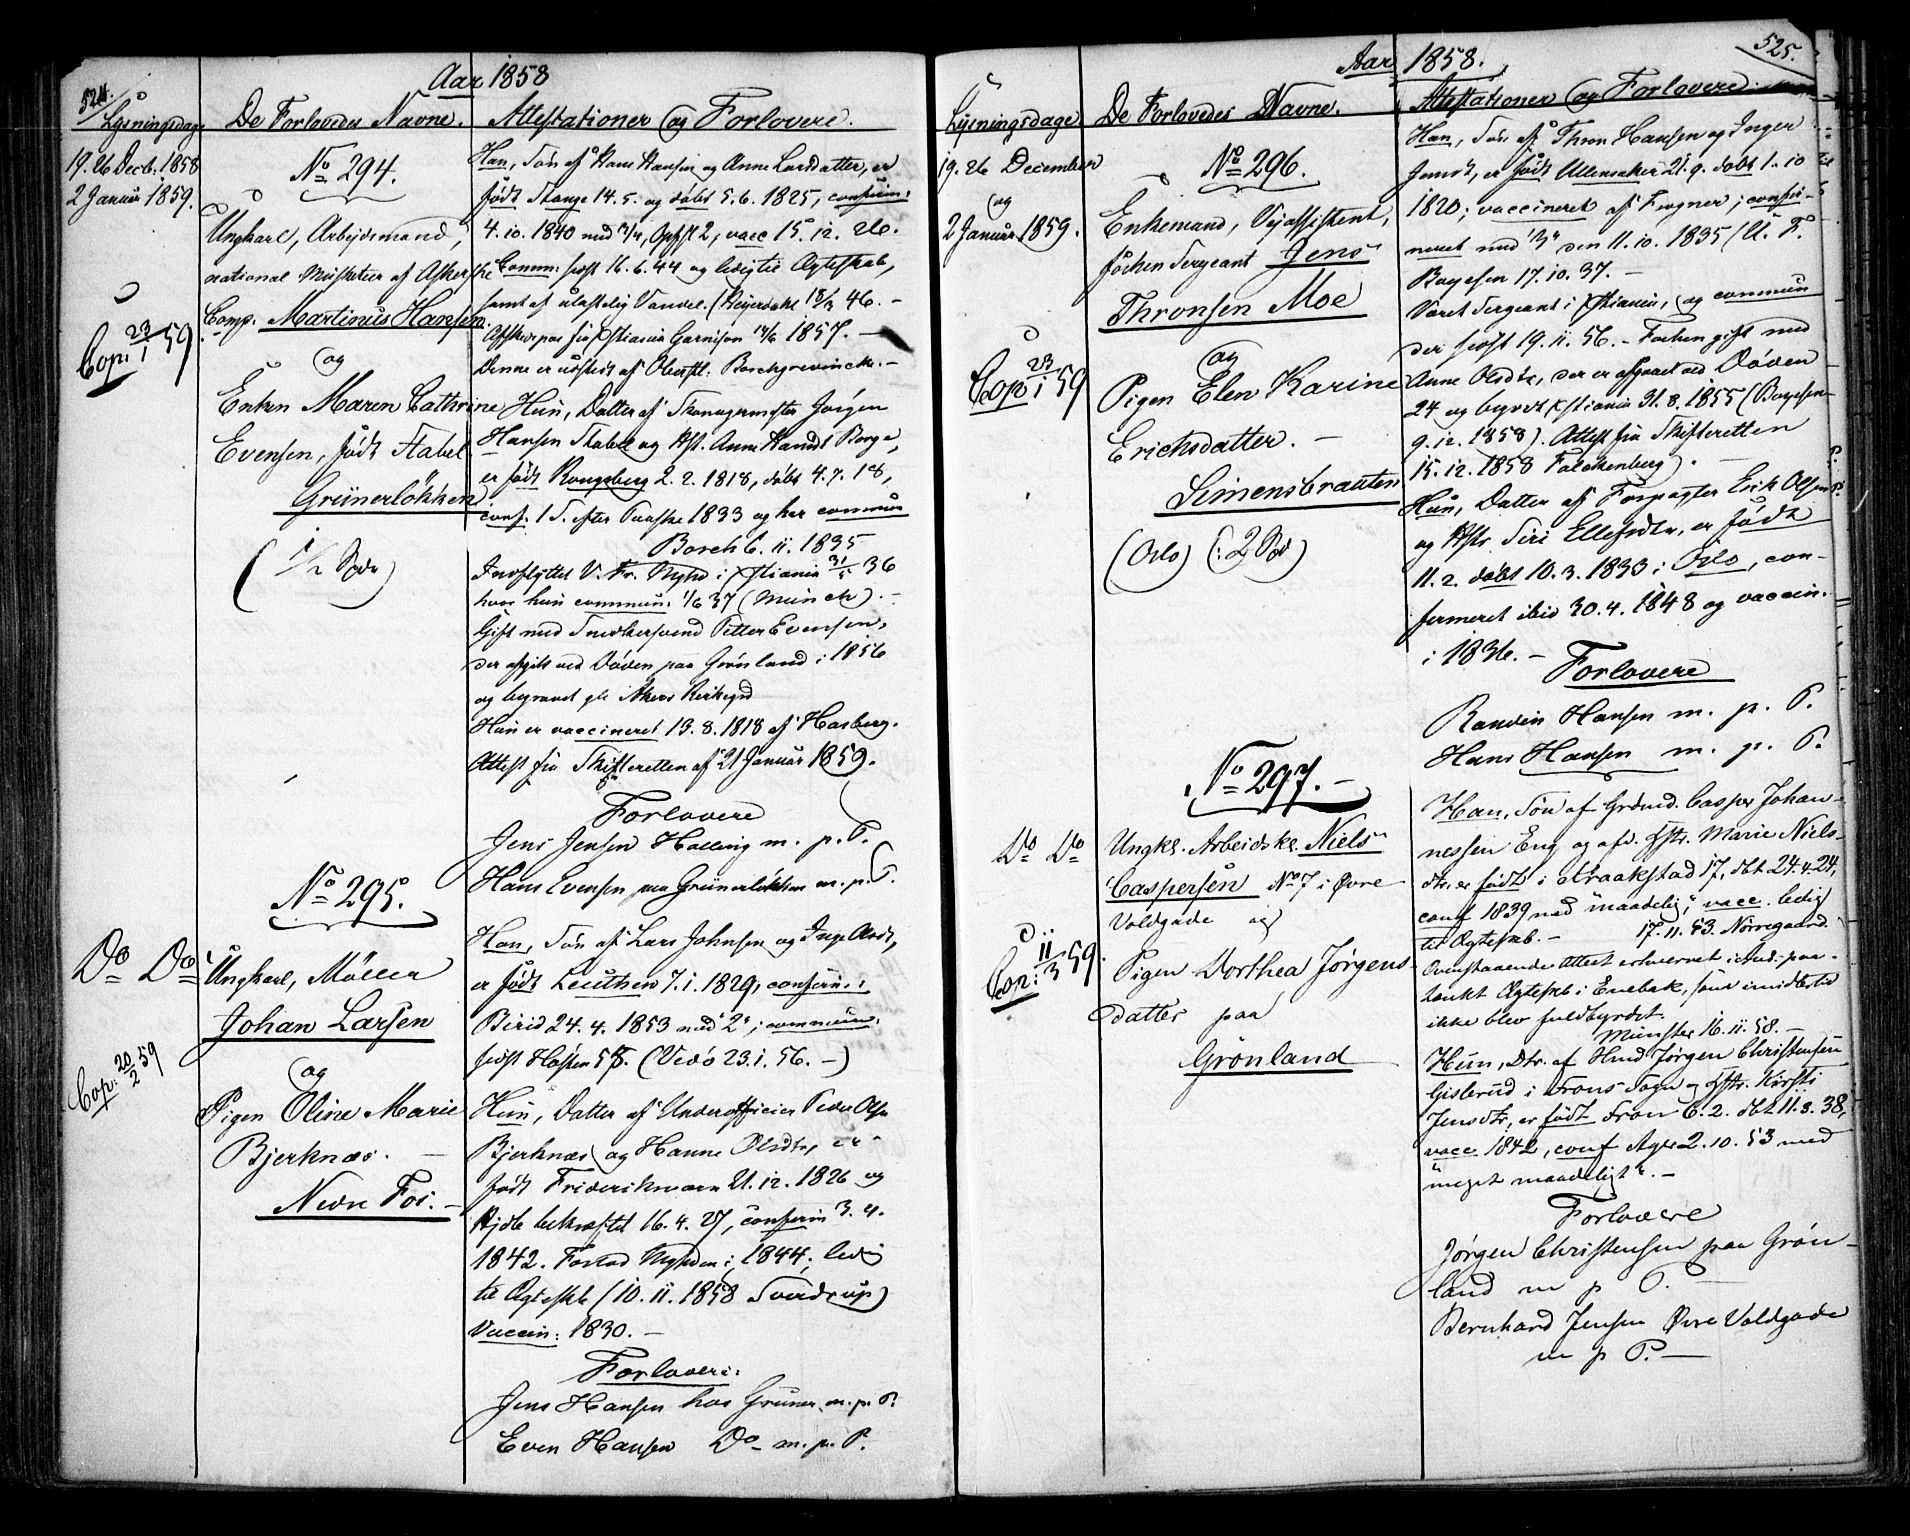 524.
Aar 1858
Lysningsdage
De Forlovedes Navne.
Attestationer og Forlovere.
19. 26 Decb. 1858
2 Januar 1859.
Cop: 23/1 59
No 294.
Ungkarl, Arbejdsmand,
national Musketeer af Akerske
Comp. Martinus Hansen
og
Enken Maren Cathrine
Evensen, født Stabel
Grünerløkken
(1/2 Spdr)
Han, Søn af Hans Hansen og Anne Larsdatter, er
født Stange 14. 5. og døbt 5. 6. 1825, confirm:
4. 10. 1840 med
vacc 15. 12. 26.
Comm: sidst 16. 6. 44 og ledig til Ægteskab,
samt af ulastelig Vandel. (Heyerdahl 18/3 46. -
Afskedspas fra Xstiania Garnison 14/6 1857. -
Denne er udstedt af Oberstl. Borchgrevinck. -
Hun, Datter af Jørgen
Hansen Stabel og Hst. Anne Randi Borge,
er født Kongsberg 2. 2. 1818, døbt 4. 7. 18,
conf. 1 S. efter Paaske 1833 og her commun
Borch 6. 11. 1835
Indflyttet V. Fr. Nyhd i Xstiania 31/5 36
hvor hun commun: 1/6 37 (Munch). -
Gift med Snedkersvend Petter Evensen,
der afgik ved Døden paa Grønland i 1856
og begravet gl. Akers Kirkegrd
Hun er vaccineret 13. 8. 1818 af Hasberg.
Attest fra Skifteretten af 21 Januar 1859.
Forlovere
Jens Jensen Halling m. p. P.
Hans Evensen paa Grünerløkken m. p. P.
No 295.
Do Do
Cop: 20/2 59
Ungkarl, Møller
Johan Larsen
og
Pigen Oline Marie
Bjerknæs. -
Nedre Fos. -
Han, Søn af Lars Johnsen og Inge Olsdt,
er født Leuthen 7. 1. 1829, confirm:
Birid 24. 4. 1853 med "2"; commun:
sidst Høsten 55. (Vedø 23. 1. 56. -)
Hun, Datter af Underofficier Peder Olsn
Bjerknæs og Hanne Olsdtr, er
født Frideriksværn 21. 12. 1826 og
Hjdb bekræftet 16. 4. 27, confirm 3. 4.
1842. Forlod Nyheden i 1844; ledig
til Ægteskb (10. 11. 1858 Sverdrup)
Vaccin: 1830. -
Forlovere:
Jens Hansen hos Gruner m. p. P.
Even Hansen Do m. p. P.
525.
Aar 1858.
Lysningsdage
De Forlovedes Navne.
Attestationer og Forlovere.
19. 26 December
og
2 Januar 1859.
Cop 23/1 59
No 296.
Enkemand, Vejassistent,
forhen Sergeant Jens
Thronsen Moe
og
Pigen Elen Karine
Erichsdatter. -
Simensbraaten
(Oslo) (: 2 Spd)
Han, Søn af Thron Hansen og Inger
Jensdt, er født Ullensaker 21. 9. døbt 1. 10
1820; vaccineret af Frogner; confir-
meret med "3" den 11. 10. 1835 (U. F.
Bogesen 17. 10. 37. -
Været Sergeant i Xstiania, og commun
der sidst 19. 11. 56. - Forhen gift med
Anne Olsdtr, der er afgaaet ved Døden
24 og begrvt Xstiania 31. 8. 1855 (Bogesen
9. 12. 1858). Attest fra Skifteretten
15. 12. 1858 Falckenberg). -
Hun, Datter af Forpagter Erik Olsen
og Hst Siri Ellefsdtr, er født
11. 2. døbt 10. 3. 1833 i Oslo, con-
firmeret ibid 30. 4. 1848 og vaccin.
i 1836. -
Forlovere
Randin Hansen m. p. P.
Hans Hansen m. p. P.
No 297. -
Do Do
Cop: 11/3 59.
Ungkl. Arbeidskl. Niels
Caspersen No 7 i Øvre
Voldgade og
Pigen Dorthea Jørgens-
datter paa
Grønland
Han, Søn af Grdmd. Casper Johan-
nessen Eng og afd. Hstr. Marie Niels-
dtr. er født i Kraakstad 17, dbt 24. 4. 24,
conf 1839 med "maadelig", vacc. ledig
til Ægteskb. - 17. 11. 53. Nørregaard.
Ovenstaaende Attest erhvervet i Anl. paa-
tænkt Ægteskb i Enebak, som imidlertid
ikke blev fuldbyrdet.
Münster 16. 11. 58. -
Hun, Dtr. af Husmd Jørgen Christensen
Gislerud i Frons Sogn og Hstr. Kirsti
Jensdtr, er født Fron 6. 2. dbt 11. 3. 38,
vacc 1842, conf Ager 2. 10. 53 med
"meget maadeligt". -
Forlovere
Jørgen Christensen paa Grøn-
land m p P.
Bernhard Jensen Øvre Voldgade
m p P. -